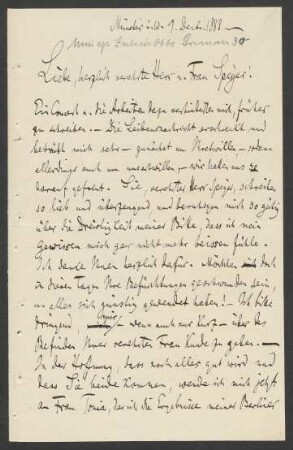 Münster i. W. 9. Dezbr. 1888.
Liebe, herzlich verehrte Herr u. Frau Speyer!
Ein Concert u. die Arbeiten dazu verhinderten mich, früher
zu schreiben. – Die Leidensnachricht erschreckt und
betrübt mich sehr – zunächst um Ihretwillen – sodann
allerdings auch um unsertwillen – wir haben uns so
darauf gefreut. Sie, verehrter Herr Speyer, schreiben
so lieb und überzeugend und beruhigen mich so gütig
über die Dreistigkeit meiner Bitte, dass ich mein
Gewissen mich gar nicht mehr beissen fühle.
Ich danke Ihnen herzlich dafür. Möchten doch
in diesen Tagen Ihre Befürchtungen geschwunden sein,
u. alles sich günstig gewendet haben! – Ich bitte
dringend, – wenn auch nur kurz – über das
Befinden Ihrer verehrten Frau Kunde zu geben. –
In der Hoffnung, dass noch alles gut wird und
dass Sie beide kommen, wende ich mich jetzt
an Frau Tonia, der ich die Ergebnisse meiner Berliner